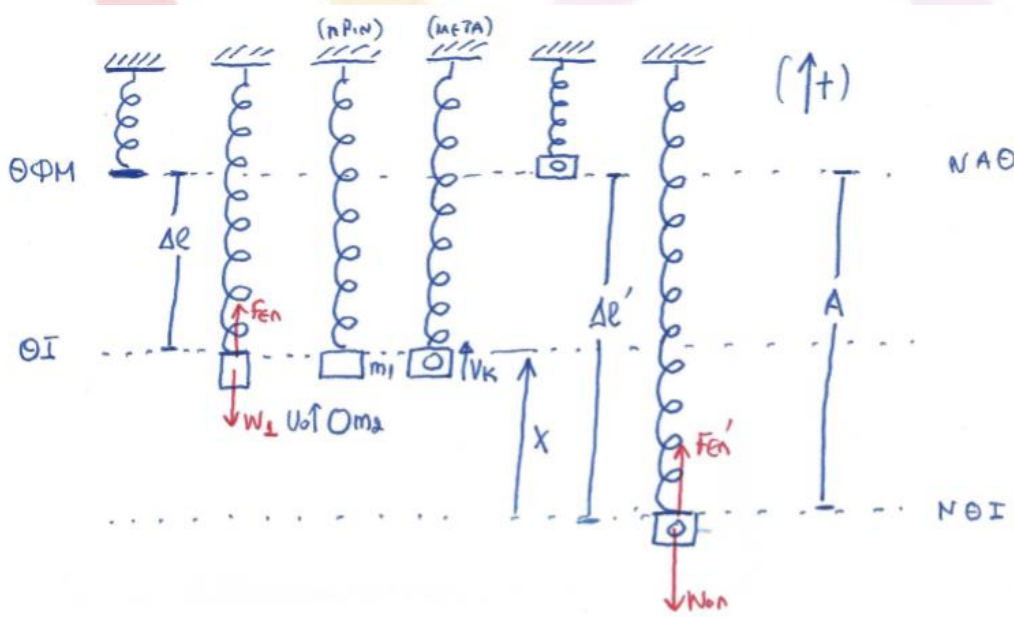 (ΠΡΙΝ) (ΜΕΤΑ)
(↑+)
ΘΦΜ ΝΑΘ
Δℓ
Fελ
Δℓ'
A
ΘΙ
m₁
Vκ
W₁ υ₀↑ m₂
x
Fελ'
ΝΘΙ
Wολ